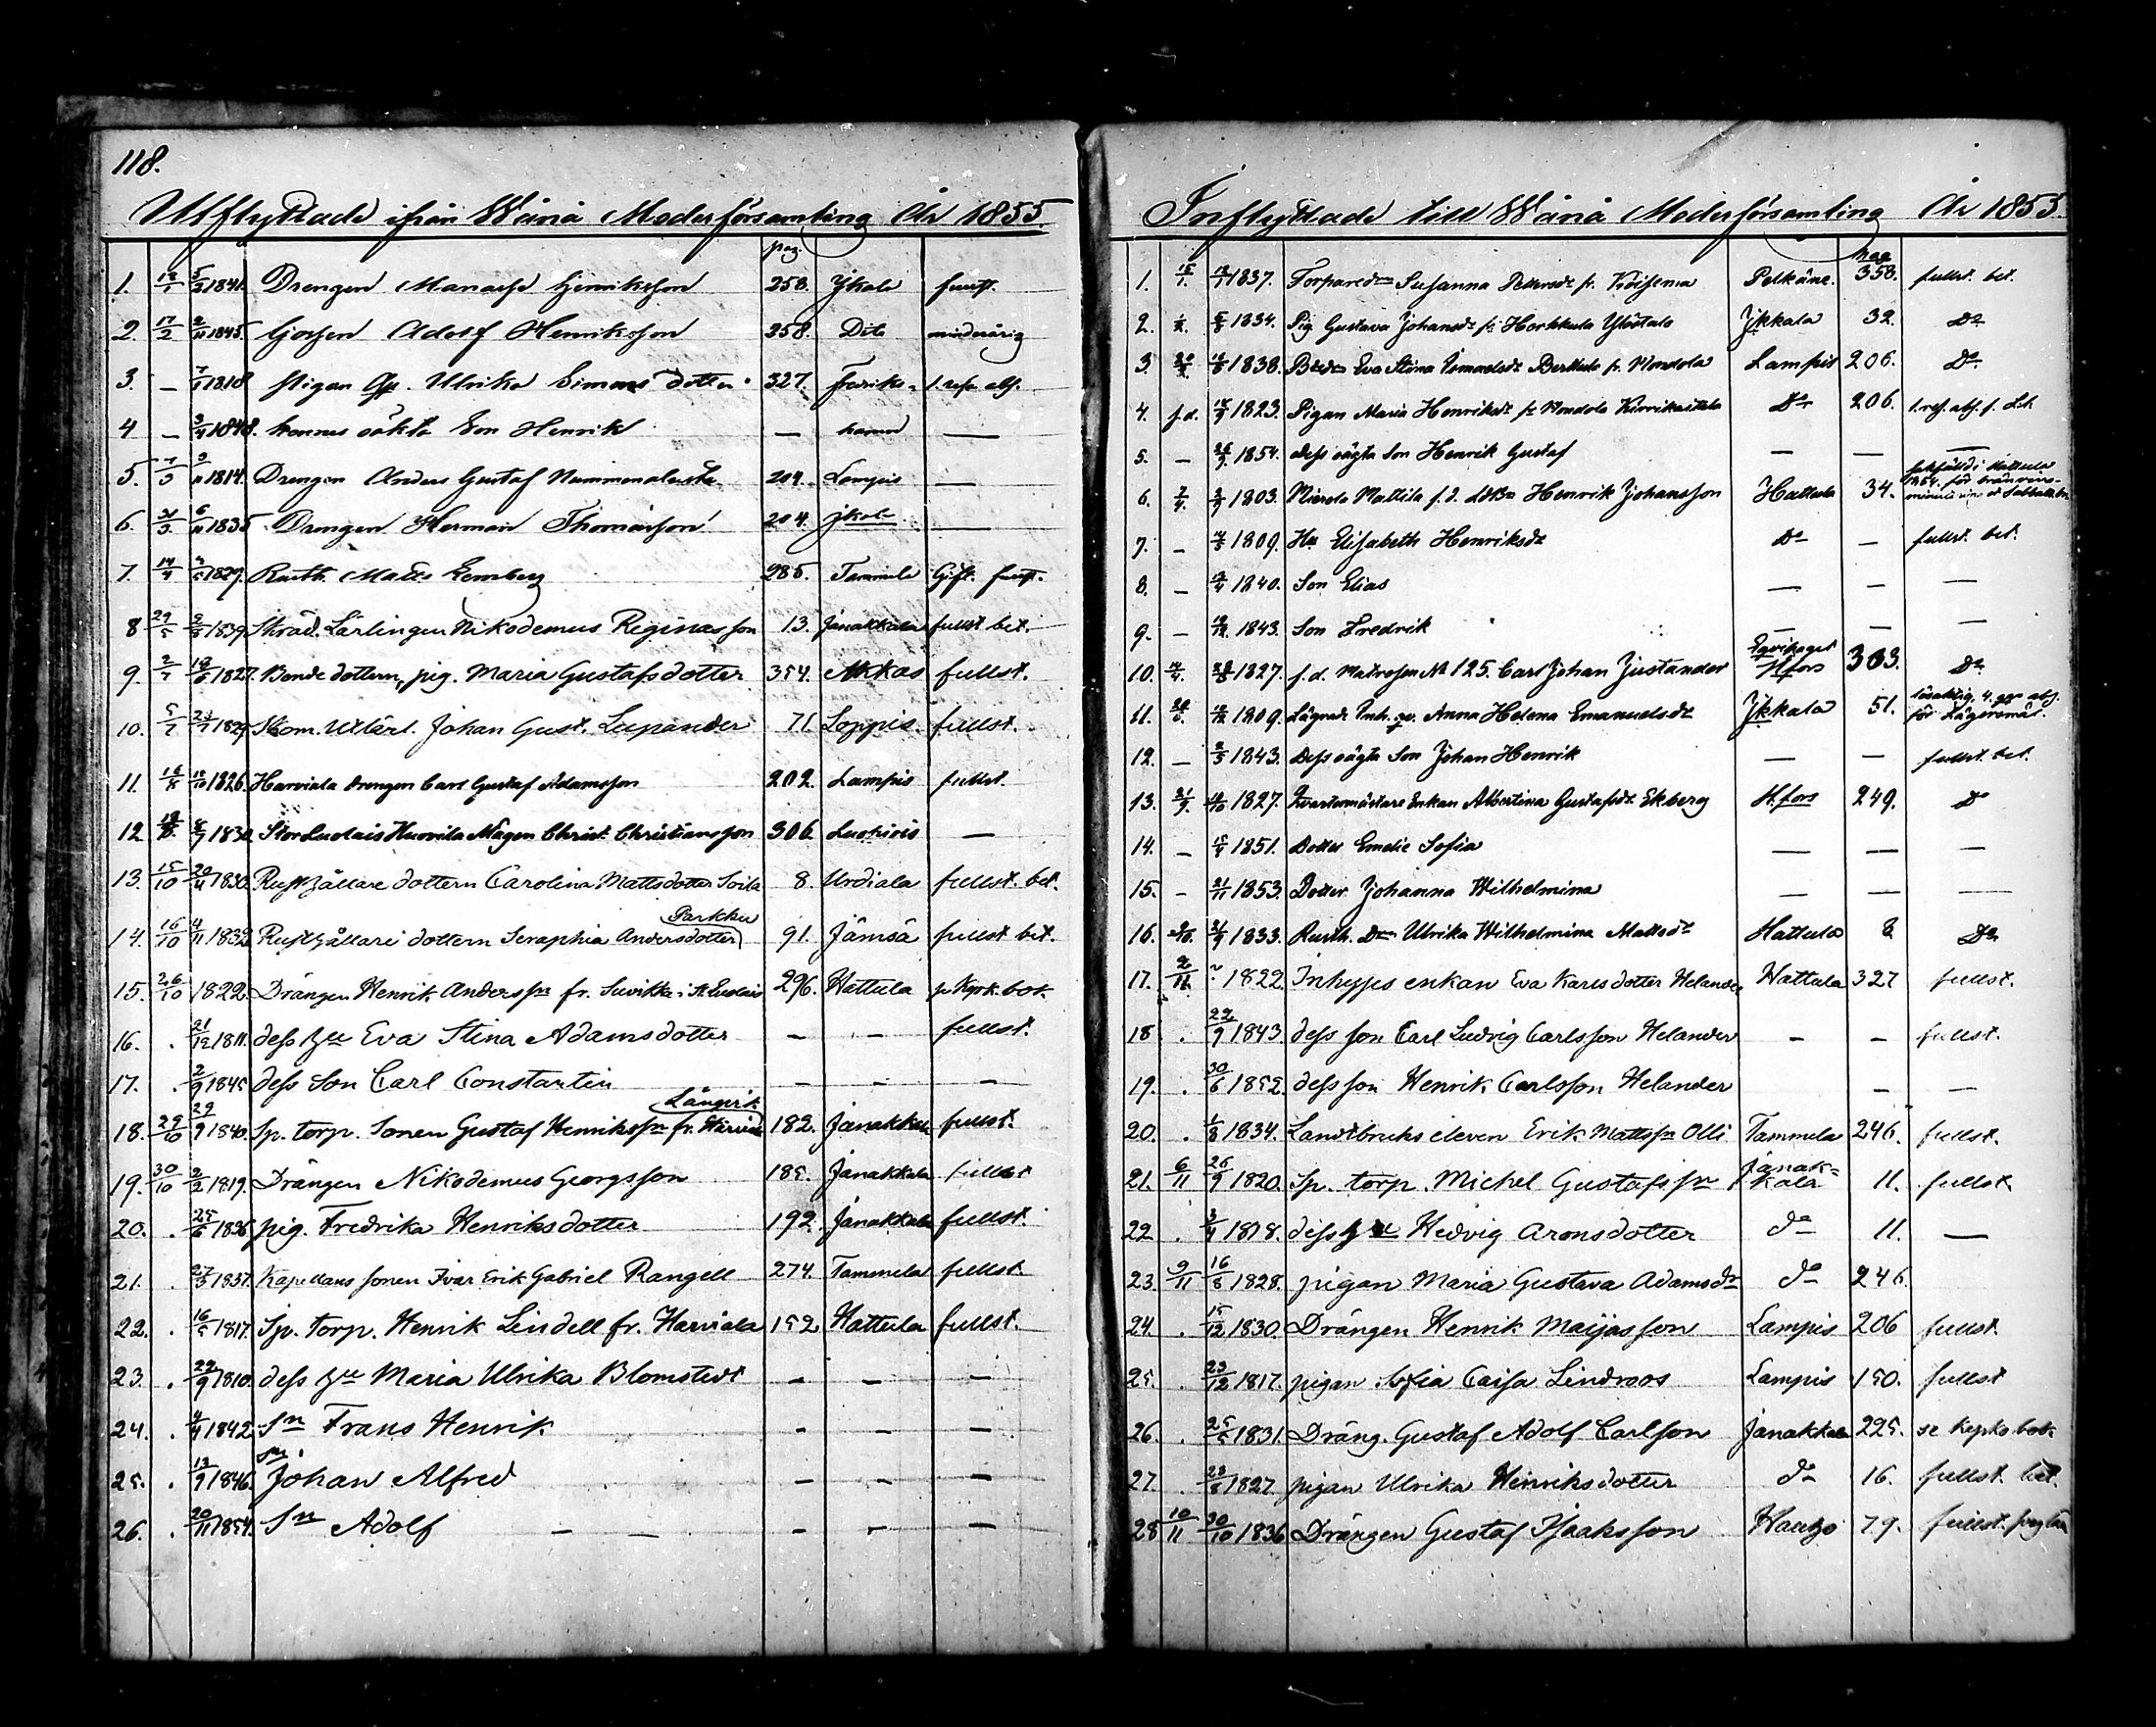 118.
Utflyttade ifrån Wånå Moderförsamling År 1855.
pag.
1. 5/2 1841. Drengen Manasse Henriksson 258. Jkala
2. 17/2 2/11 1845. Gossen Adolf Henriksson 258. Dito minderårig
3. — 1818 pigan Ulrika Simons dotter 327. 1. resa abs.
4 — 3/4 1848. hennes oäkta Son Henrik — —
5. 7/3 9/11 1814. Drengen Anders Gustaf 204. Lampis —
6. 21/3. 6/11 1835 Drengen Herman Thomasson 204. Jkala —
7. 14/4 1829. Rusth. Matts Lemberg 285. Tammela Gift.
8 29/5 1839. Skräd. Lärlingen Nikodemus Reginasson 13. Janakkala fullst bet.
9. 2/7 18/6 1827. Bonde dottern, pig. Maria Gustafsdotter 354. Akkas fullst.
10. 5/7 23/7 1829. Skom. Utlärl. Johan Gust. Lupander 71. Loppis. fullst.
11. 1826. Harviala Drengen Carl Gustaf Adamsson 202. Lampis fullst.
12 8/7 1830. Stor Luolais Huovila Mågen Christ. Christiansson 306. Luopiois —
13. 15/10 20/4 1830. Rusthållare dottern Carolina Mattsdotter Soila 8. Urdiala fullst. bet.
Parkku
14. 16/10 4/11 1832. Rusthållare dottern Seraphia Andersdotter 91. Jämsä fullst bet.
15. 26/10 1822. Drängen Henrik Anderssn fr. Suvikka i St. Luolais 296. Hattula p Kyrk. bok.
16. . 21/12 1811. dess hu Eva Stina Adamsdotter — — fullst.
17. . 2/9 1845 dess Son Carl Constantin — — —
Långvik
18. 29/10 29/9 1840. Sp. torp. Sonen Gustaf Henrikssn fr. 182. Janakkala fullst.
19. 30/10 2/2 1819. Drängen Nikodemus Georgsson 185. Janakkala fullst
20. . 25/6 1836 pig. Fredrika Henriksdotter 192. Janakkala fullst.
21. . 27/5 1837. Kapellans sonen Ivar Erik Gabriel Rangell 274. Tammela fullst.
22. . 16/5 1817. Sp. torp. Henrik Lindell fr. Harviala 152 Hattula fullst.
23. . 22/9 1810. dess hu Maria Ulrika Blomstedt — — —
24. . 4/4 1842. Sn Frans Henrik — — —
25. . 13/9 1846. sn Johan Alfred — — —
26. . 20/11 1854. Sn Adolf — — — — —
Inflyttade till Wånå Moderförsamling År 1855.
pag
1. 15/1. 1837. Torpared:n Susanna Pettersdr fr. Pelkäne. 358. fullst. bet.
2. 1834. Pig Gustava Johansdr fr. Jkkala 32. Do
3. 1838. Eva Stina fr. Mondola Lampis 206. Do
4. s.d. 1823. Pigan Maria Henriksdr fr Mondola Do 206. 1. res. abs. f. Lsk
5. — 1854. dess oägta Son Henrik Gustaf — — —
6. 1803. Mierola Mattila f. d. Henrik Johansson Hattula 34. sakfäld i Hattula 1854. för brännvins-
7. — 1809. Hu Elisabeth Henriksdr Do — fullst. bet.
8. — 1840. Son Elias — — —
9. — 1843. Son Fredrik — — —
10. 1827. f.d. Matrosen No 125. Carl Johan Justander Hfors 303. Do
11. 1809. Lägrade Inh. qv. Anna Helena Emanuelsdr Jkkala 51. abs. för Lägersmål.
12. — 1843. Dess oägta Son Johan Henrik — — fullst. bet.
13. 21/9. 1827. Qvartermästare Enkan Albertina Gustafsdr. Ekberg H.fors 249. Do
14. — 1851. Dotter Emelie Sofia — — —
15. — 21/11 1853. Dotter Johanna Wilhelmina — — —
16. 21/9 1833. Rusth. Dr Ulrika Wilhelmina Mattsdr Hattula 8 Do
17. 2/11. ? 1822. Inhyses enkan Eva Karlsdotter Helander Hattula 327 fullst.
18 . 22/9 1843. dess son Carl Ludvig Carlsson Helander — — fullst.
19. . 30/6 1852. dess son Henrik Carlsson Helander — —
20. . 1/8 1834. Landtbruks eleven Erik Mattssn Olli Tammela 246. fullst.
21. 6/11 26/9 1820. Sp. torp. Michel Gustafssn Janak=kala 11. fullst.
22 . 3/4 1818. dess hu Hedvig Aronsdotter do 11. —
23. 9/11 16/8 1828. pigan Maria Gustava Adamsdr do 246.
24. . 15/12 1830. Drängen Henrik Maijasson Lampis 206 fullst.
25. . 23/12 1817. pigan Sofia Caisa Lindroos Lampis 150. fullst
26. . 25/5 1831. Dräng. Gustaf Adolf Carlsson Janakkala 225. se kyrko bok
27. . 23/8 1827. pigan Ulrika Henriksdotter do 16. fullst. bet.
28 10/11 30/10 1836 Drängen Gustaf Isaksson Hauho 79. fullst.